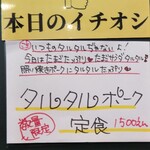 本日のイチオシ
いつものタルタルぢゃないよ!
今日はたまごたっぷり♥たまごサラダタルタル♪
照り焼きポークにタルタルたっぷり♥
タルタルポーク
数量限定
定食 1500えん